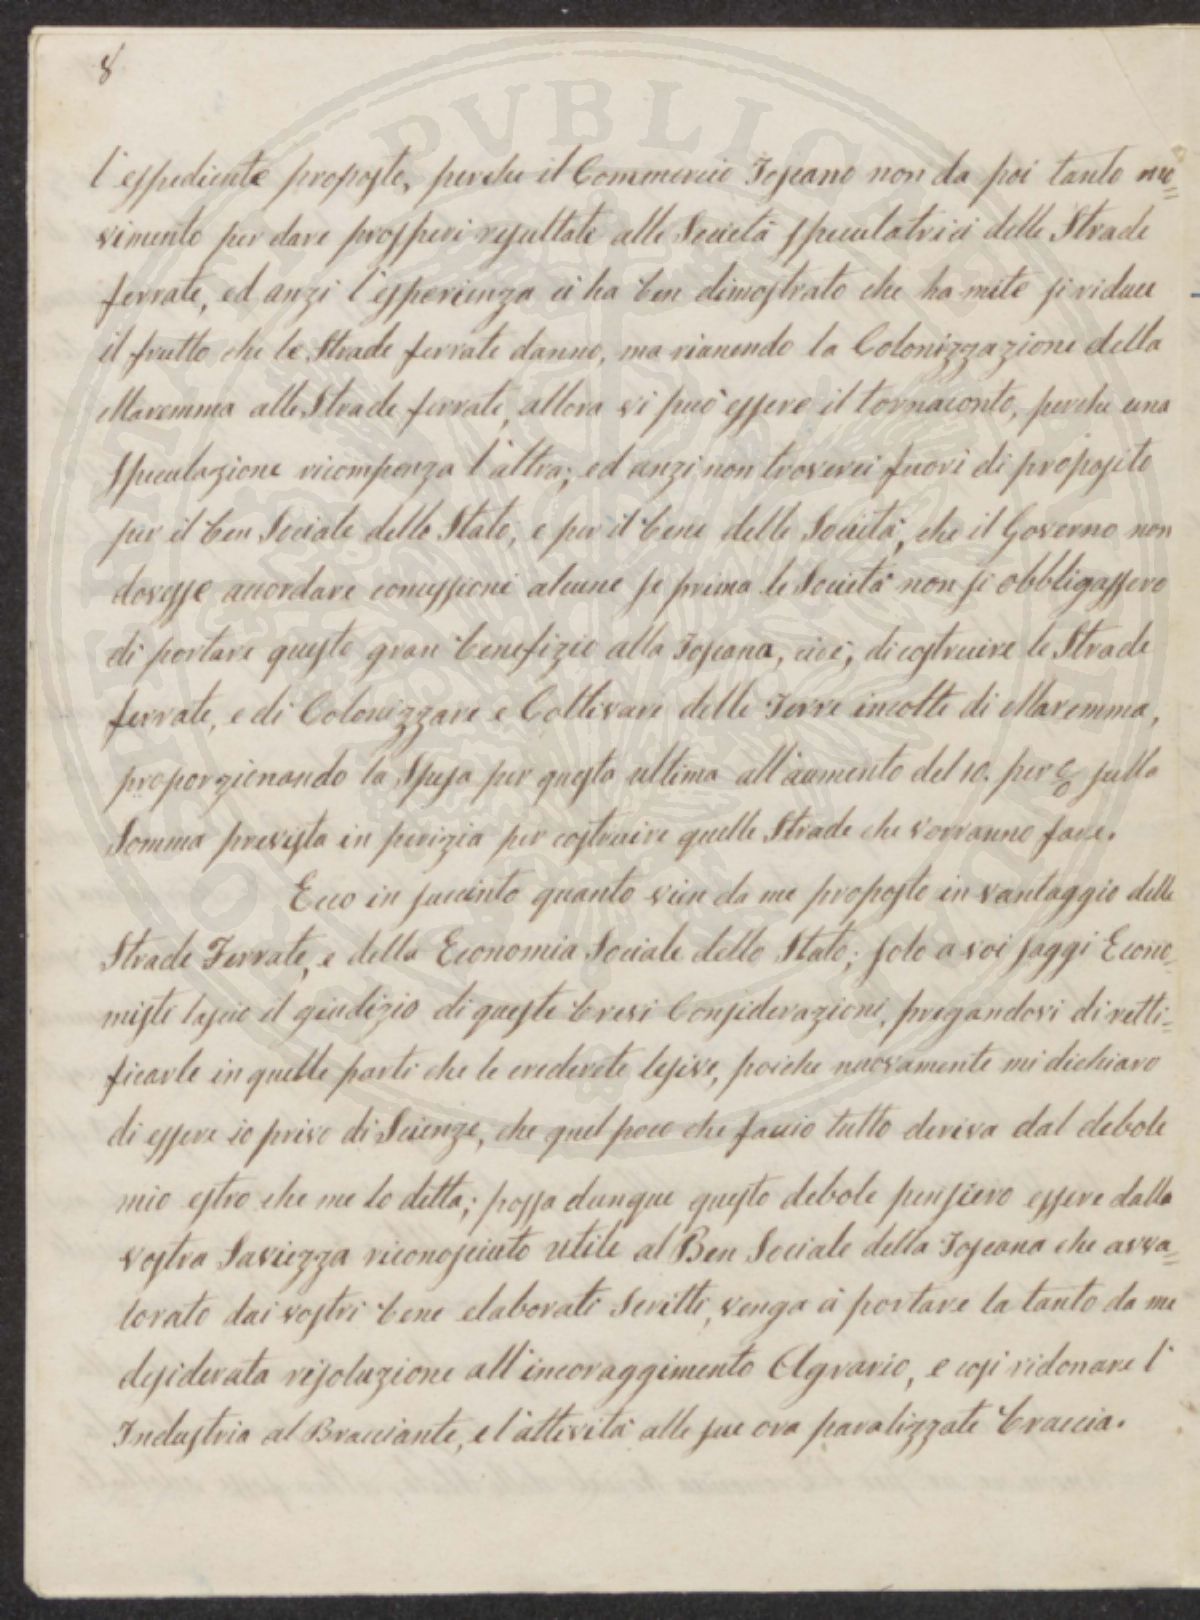 8
l'espediente proposto, perche il Commercio Toscano non da poi tanto mo=
vimento per dare prosperi resultati alle Società speculatrici delle Strade
ferrate, ed anzi l'esperienza ci ha ben dimostrato che ha mite si riduce
il frutto che le Strade ferrate danno, ma rianendo la Colonizzazione della
Maremma alle Strade ferrate, allora vi può essere il tornaconto, perche una
speculazione ricompenza l'altra; ed anzi non troverei fuori di proposito
per il ben Sociale dello Stato, e per il bene delle Società, che il Governo non
dovesse accordare concessioni alcune se prima le Società non si obbligassero
di portare questo gran benefizio alla Toscana, cioè, di costruire le Strade
ferrate, e di Colonizzare e Coltivare delle Terre incolte di Maremma,
proporzionando la Spesa per questa ultima all'aumento del 10. per % sulla
Somma prevista in perizia per costruire quelle Strade che vorranno fare.
Ecco in succinto quanto vien da me proposto in vantaggio delle
Strade Ferrate, e della Economia Sociale dello Stato; solo a voi saggi Econo=
misti lascio il giudizio di queste brevi Considerazioni, pregandovi di retti=
ficarle in quelle parti che le crederete lesive, poiche nuovamente mi dichiaro
di essere io privo di Scienze, che quel poco che faccio tutto deriva dal debole
mio estro che me lo detta; possa dunque questo debole pensiero essere dalla
vostra Saviezza riconosciuto utile al Ben Sociale della Toscana che avva=
lorato dai vostri bene elaborati Scritti, venga a portare la tanto da me
desiderata risoluzione all'incoraggimento Agrario, e cosi ridonare l'
Industria al Bracciante, e l'attività alle sue ora paralizzate braccia.
PVBLICAE